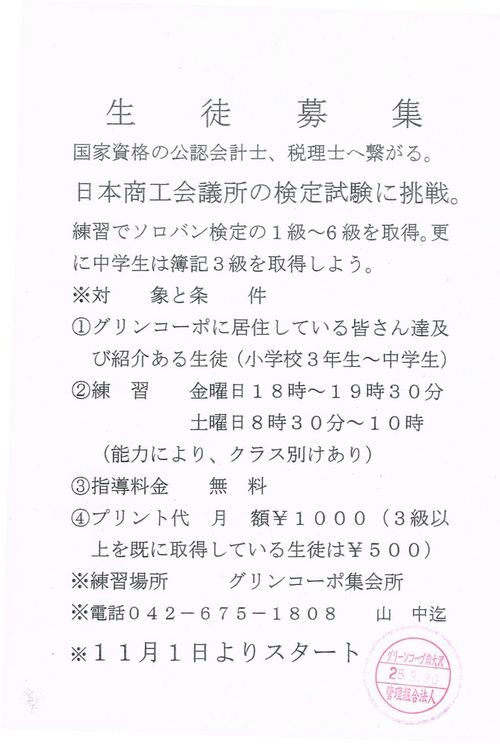 生　徒　募　集
国家資格の公認会計士、税理士へ繋がる。
日本商工会議所の検定試験に挑戦。
練習でソロバン検定の１級～６級を取得。更
に中学生は簿記３級を取得しよう。
※対　象と条　件
①グリンコーポに居住している皆さん達及
び紹介ある生徒（小学校３年生～中学生）
②練　習　　金曜日１８時～１９時３０分
土曜日８時３０分～１０時
（能力により、クラス別けあり）
③指導料金　　無　料
④プリント代　月　額￥１０００（３級以
上を既に取得している生徒は￥５００）
※練習場所　　　グリンコーポ集会所
※電話０４２－６７５－１８０８　　山　中迄
※１１月１日よりスタート
グリーンコープ南大沢
25.9.30
管理組合法人